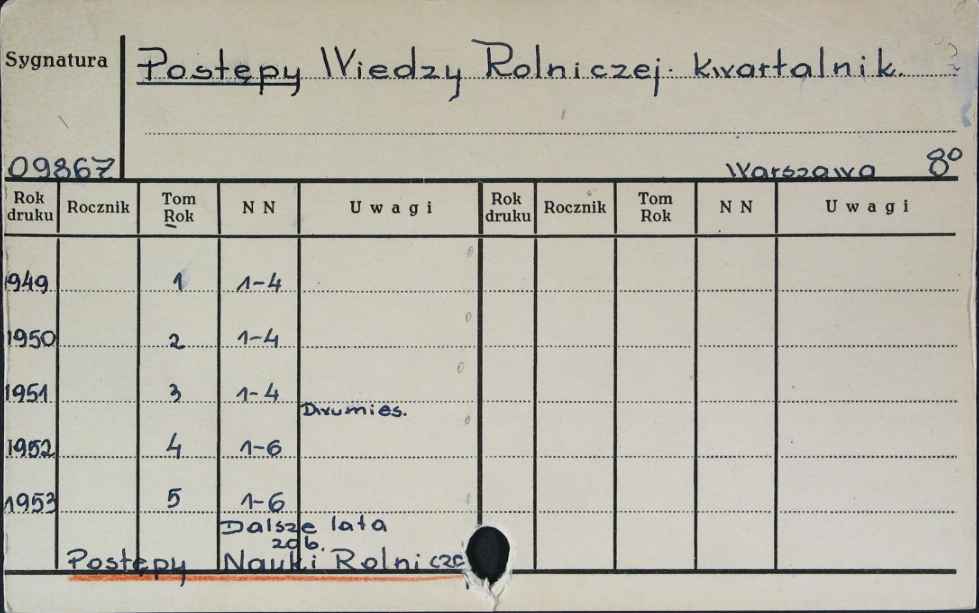 Sygnatura Postępy Wiedzy Rolniczej. Kwartalnik.
09867 Warszawa 8°
Rok druku Rocznik Tom Rok N N Uwagi Rok druku Rocznik Tom Rok N N Uwagi
1949 1 1-4
1950 2 1-4
1951 3 1-4
Dwumies.
1952 4 1-6
1953 5 1-6
Dalsze lata
zob.
Postępy Nauki Rolnicze